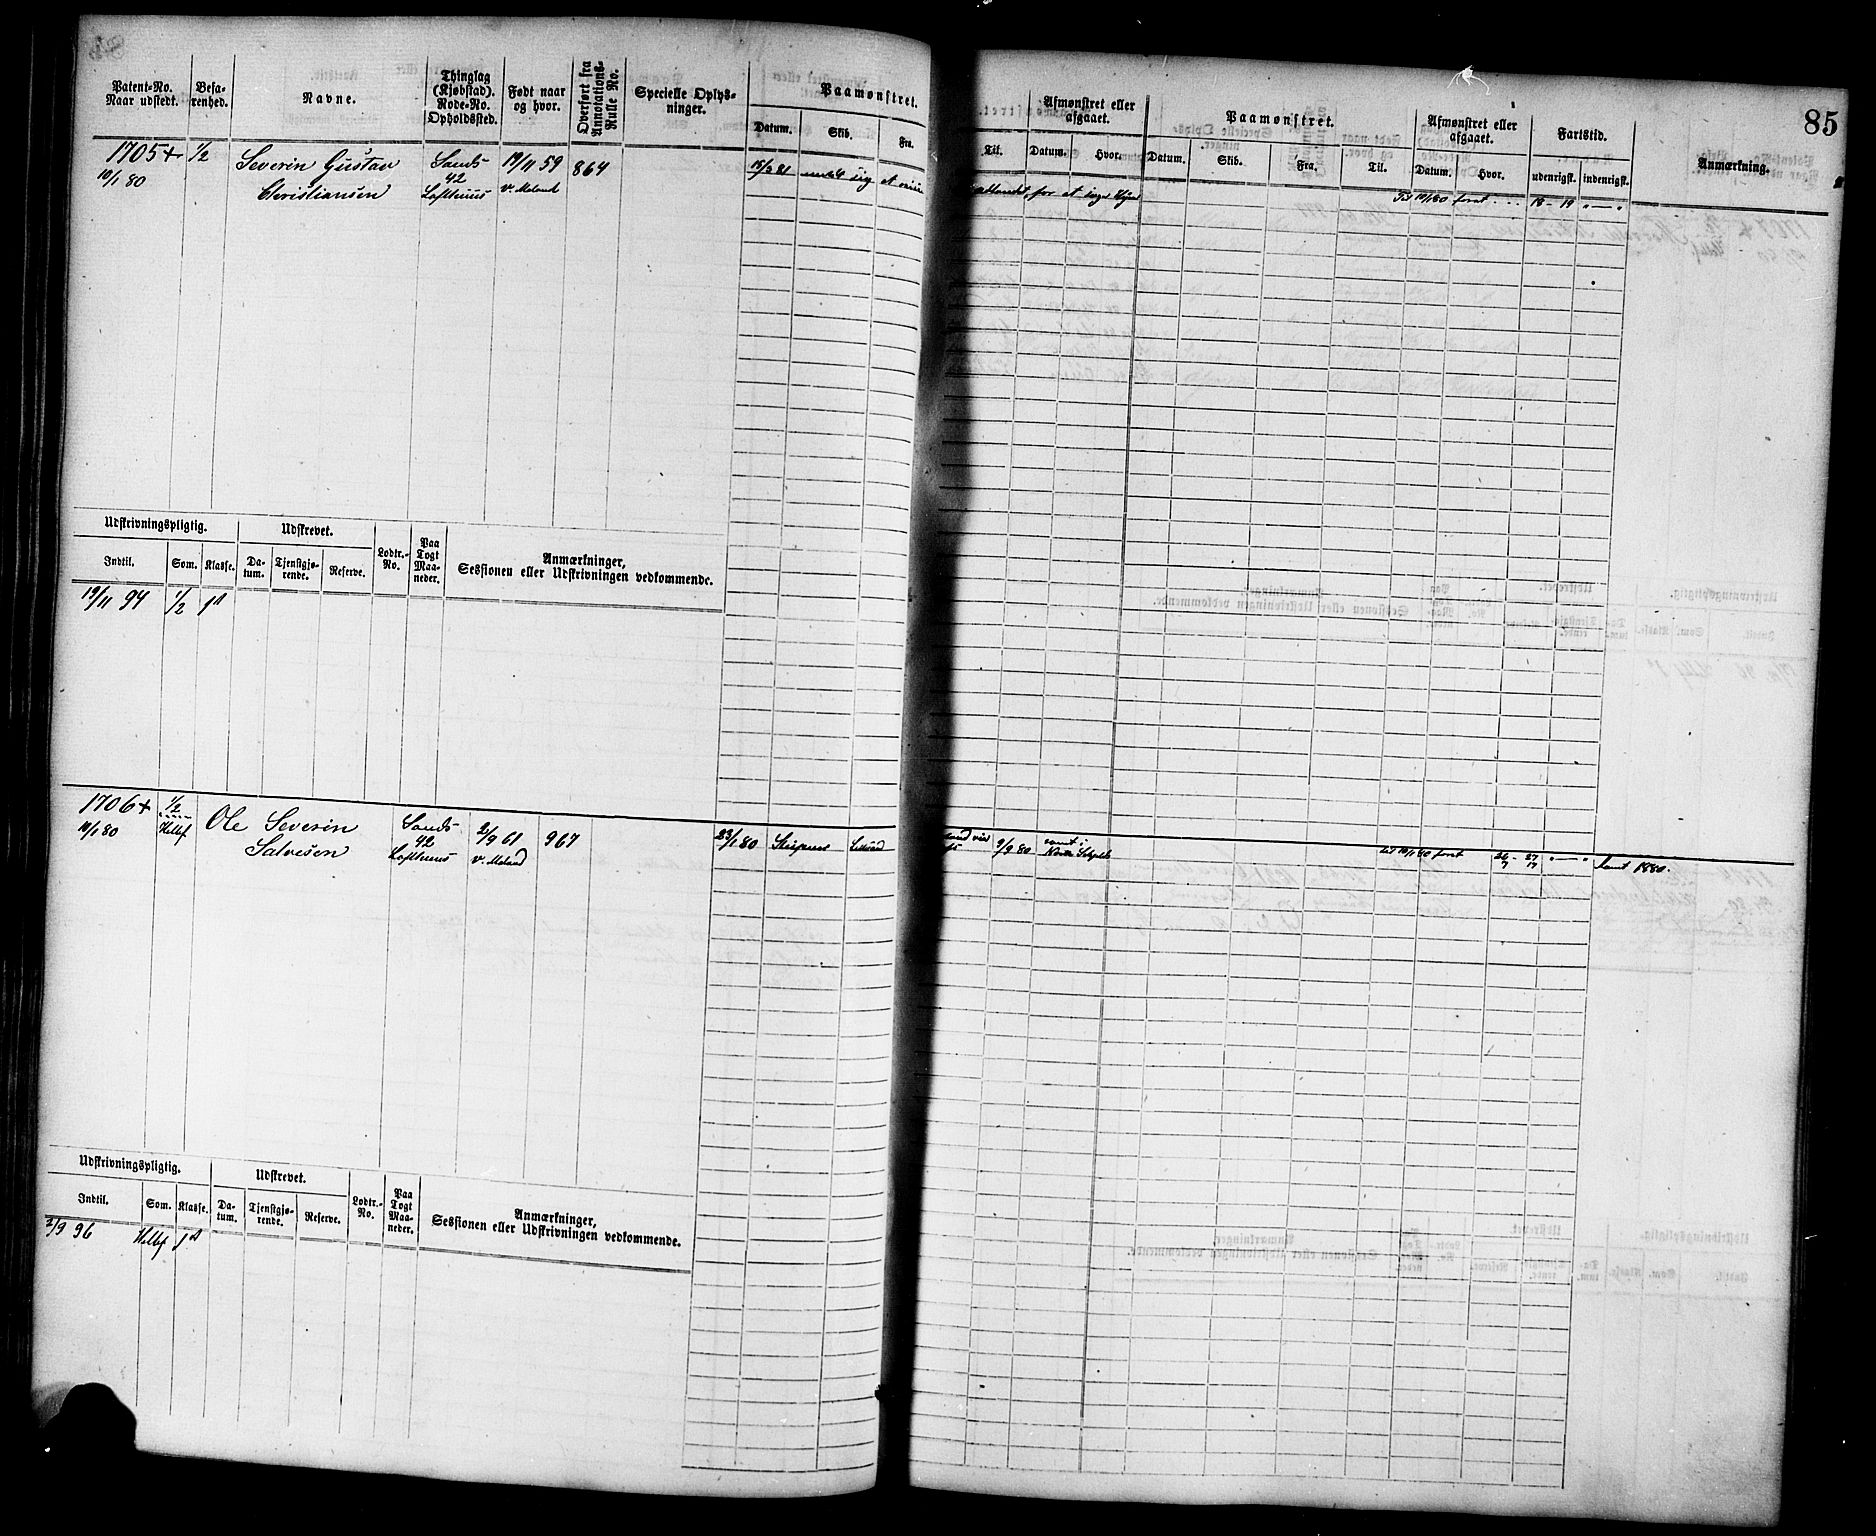 85
Patent-No. Naar udstedt.
Befa-renhed.
Navne.
Thinglag (Kjøbstad). Rode-No. Opholdssted.
Født naar og hvor.
Overført fra Annotations-Rulle No.
Specielle Oplys-ninger.
Paamønstret.
Datum. Skib. Fra. Til.
Afmønstret eller afgaaet.
Datum. Hvor.
Paamønstret.
Datum. Skib. Fra. Til.
Afmønstret eller afgaaet.
Datum. Hvor.
Fartstid.
udenrigsk. indenrigsk.
Anmærkning.
1705+ 1/2 Severin Gustav Sands 19/11 59 864 15/3 81
10/1 80 Christiansen 42 v. Moland
Lofthuus
Til 10/1 80 foret 18 - 19
Udskrivningspligtig.
Udskrevet.
Lodtr.-No.
Paa Togt Maa-neder.
Anmærkninger,
Sessionen eller Udskrivningen vedkommende.
Indtil. Som. Klasse. Da-tum. Tjenstgjø-rende. Reserve.
19/11 94 1/2 1st
1706+ 1/2 Ole Severin Sands 2/9 61 967 23/1 80
10/1 80 Helbf. Salvesen 42 v. Moland
Lofthuus
9/9 80
til 10/1 80 foret
1880.
Udskrivningspligtig.
Udskrevet.
Lodtr.-No.
Paa Togt Maa-neder.
Anmærkninger,
Sessionen eller Udskrivningen vedkommende.
Indtil. Som. Klasse. Da-tum. Tjenstgjø-rende. Reserve.
2/9 96 Helbf 1st